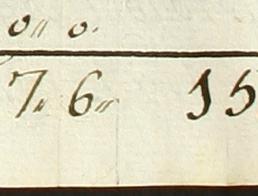 0" 0.
7" 6" 15